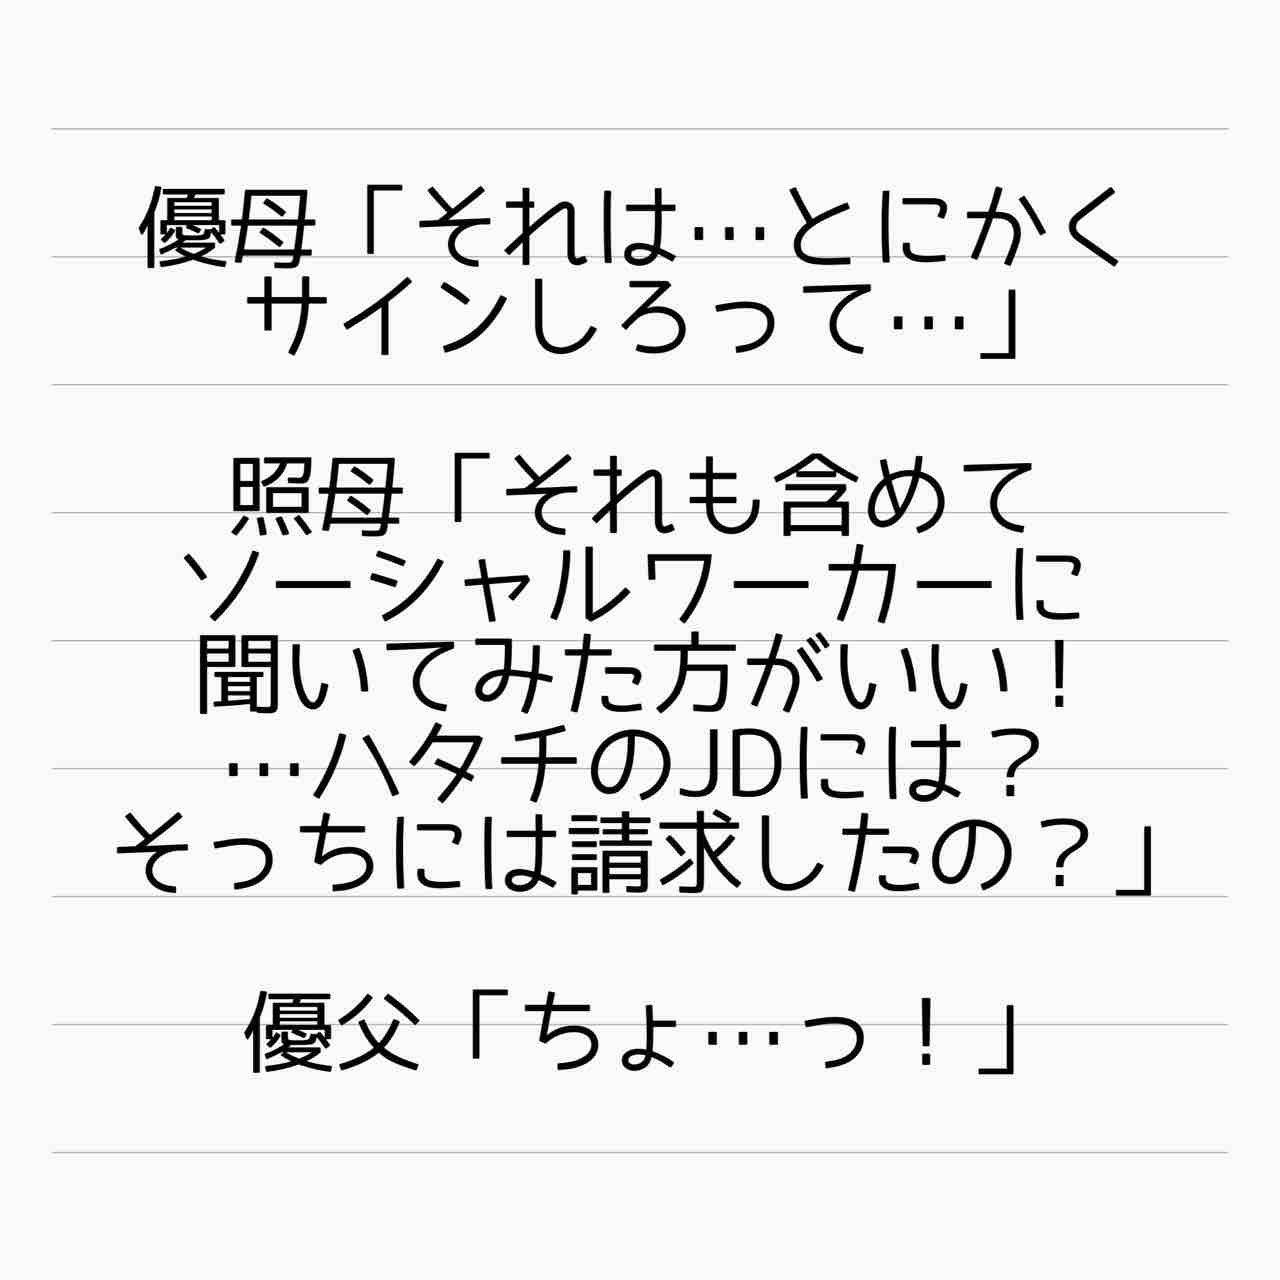 優母「それは…とにかく
サインしろって…」
照母「それも含めて
ソーシャルワーカーに
聞いてみた方がいい！
…ハタチのJDには？
そっちには請求したの？」
優父「ちょ…っ！」